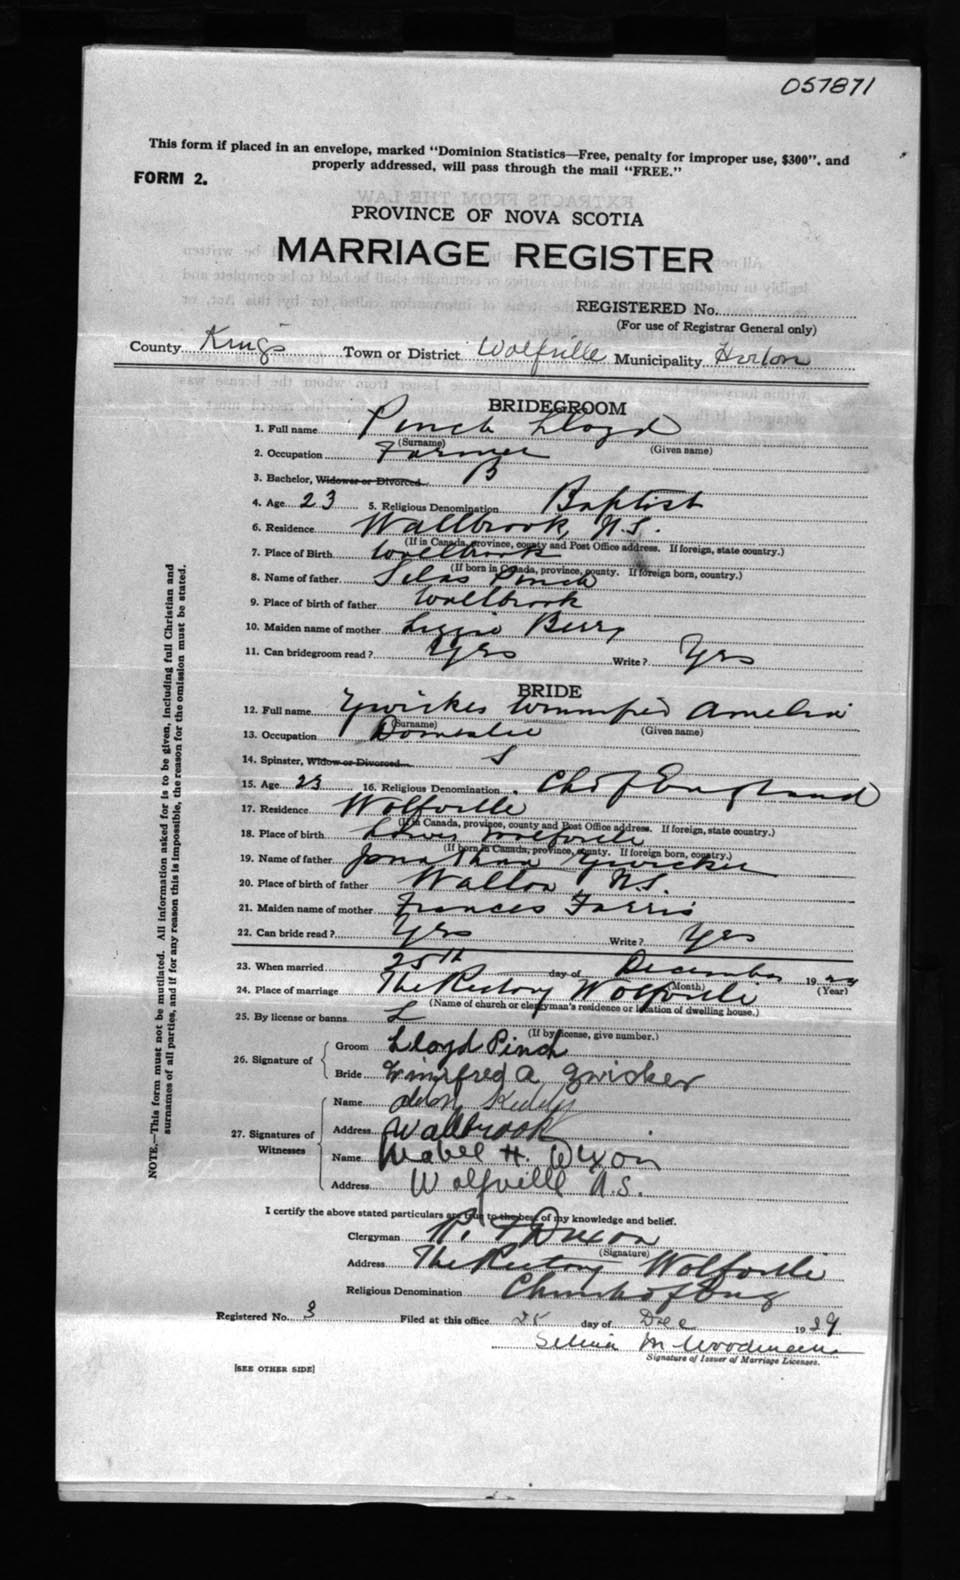 057871
This form if placed in an envelope, marked "Dominion Statistics—Free, penalty for improper use, $300", and
properly addressed, will pass through the mail "FREE."
FORM 2.
PROVINCE OF NOVA SCOTIA
MARRIAGE REGISTER
REGISTERED No.
(For use of Registrar General only)
County Kings Town or District Wolfville Municipality Horton
BRIDEGROOM
1. Full name Pinch Lloyd
(Surname) (Given name)
2. Occupation Farmer
3. Bachelor, Widower or Divorced B
4. Age 23 5. Religious Denomination Baptist
6. Residence Wallbrook, N.S.
(If in Canada, province, county and Post Office address. If foreign, state country.)
7. Place of Birth Wallbrook
(If born in Canada, province, county. If foreign born, country.)
8. Name of father Silas Pinch
9. Place of birth of father Wallbrook
10. Maiden name of mother Lizzie Berry
11. Can bridegroom read? Yes Write? Yes
BRIDE
12. Full name Zwicker Winnifred Amelia
(Surname) (Given name)
13. Occupation Domestic
14. Spinster, Widow or Divorced S
15. Age 23 16. Religious Denomination Ch of England
17. Residence Wolfville
(If in Canada, province, county and Post Office address. If foreign, state country.)
18. Place of birth Lower Wolfville
(If born in Canada, province, county. If foreign born, country.)
19. Name of father Jonathan Zwicker
20. Place of birth of father Walton, N.S.
21. Maiden name of mother Frances Farris
22. Can bride read? Yes Write? Yes
23. When married 25th day of December 1929
(Month) (Year)
24. Place of marriage The Rectory Wolfville
(Name of church or clergyman's residence or location of dwelling house.)
25. By license or banns L
(If by license, give number.)
26. Signature of
Groom Lloyd Pinch
Bride Winnifred A Zwicker
27. Signatures of Witnesses
Name Keddy
Address Wallbrook
Name Mabel H. Dixon
Address Wolfville N.S.
I certify the above stated particulars are true to the best of my knowledge and belief.
Clergyman R. F Dixon
(Signature)
Address The Rectory Wolfville
Religious Denomination Church of Eng
Registered No. 3 Filed at this office 28 day of Dec 1929
M
Signature of Issuer of Marriage Licenses.
[SEE OTHER SIDE]
NOTE.—This form must not be mutilated. All information asked for is to be given, including full Christian and
surnames of all parties, and if for any reason this is impossible, the reason for the omission must be stated.